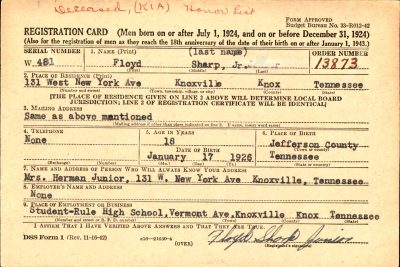 Deceased (KIA) Honor List
FORM APPROVED
Budget Bureau No. 33-R012-42
REGISTRATION CARD (Men born on or after July 1, 1924, and on or before December 31, 1924)
(Also for the registration of men as they reach the 18th anniversary of the date of their birth on or after January 1, 1943.)
SERIAL NUMBER 1. NAME (Print) (last name) ORDER NUMBER
W 481 Floyd Sharp, Jr. 13873
(First) (Middle) (Last)
2. PLACE OF RESIDENCE (Print)
131 West New York Ave Knoxville Knox Tennessee
(Number and street) (Town, township, village, or city) (County) (State)
[THE PLACE OF RESIDENCE GIVEN ON LINE 2 ABOVE WILL DETERMINE LOCAL BOARD
JURISDICTION; LINE 2 OF REGISTRATION CERTIFICATE WILL BE IDENTICAL]
3. MAILING ADDRESS
Same as above mentioned
[Mailing address if other than place indicated on line 2. If same, insert word same]
4. TELEPHONE 5. AGE IN YEARS 6. PLACE OF BIRTH
None 18 Jefferson County
DATE OF BIRTH (Town or county)
January 17 1926 Tennessee
(Exchange) (Number) (Mo.) (Day) (Yr.) (State or country)
7. NAME AND ADDRESS OF PERSON WHO WILL ALWAYS KNOW YOUR ADDRESS
Mrs. Herman Junior, 131 W. New York Ave Knoxville, Tennessee
8. EMPLOYER'S NAME AND ADDRESS
None
9. PLACE OF EMPLOYMENT OR BUSINESS
Student-Rule High School, Vermont Ave, Knoxville Knox Tennessee
(Number and street or R. F. D. number) (Town) (County) (State)
I AFFIRM THAT I HAVE VERIFIED ABOVE ANSWERS AND THAT THEY ARE TRUE.
DSS Form 1 (Rev. 11-16-42) (OVER) Floyd Sharp Junior